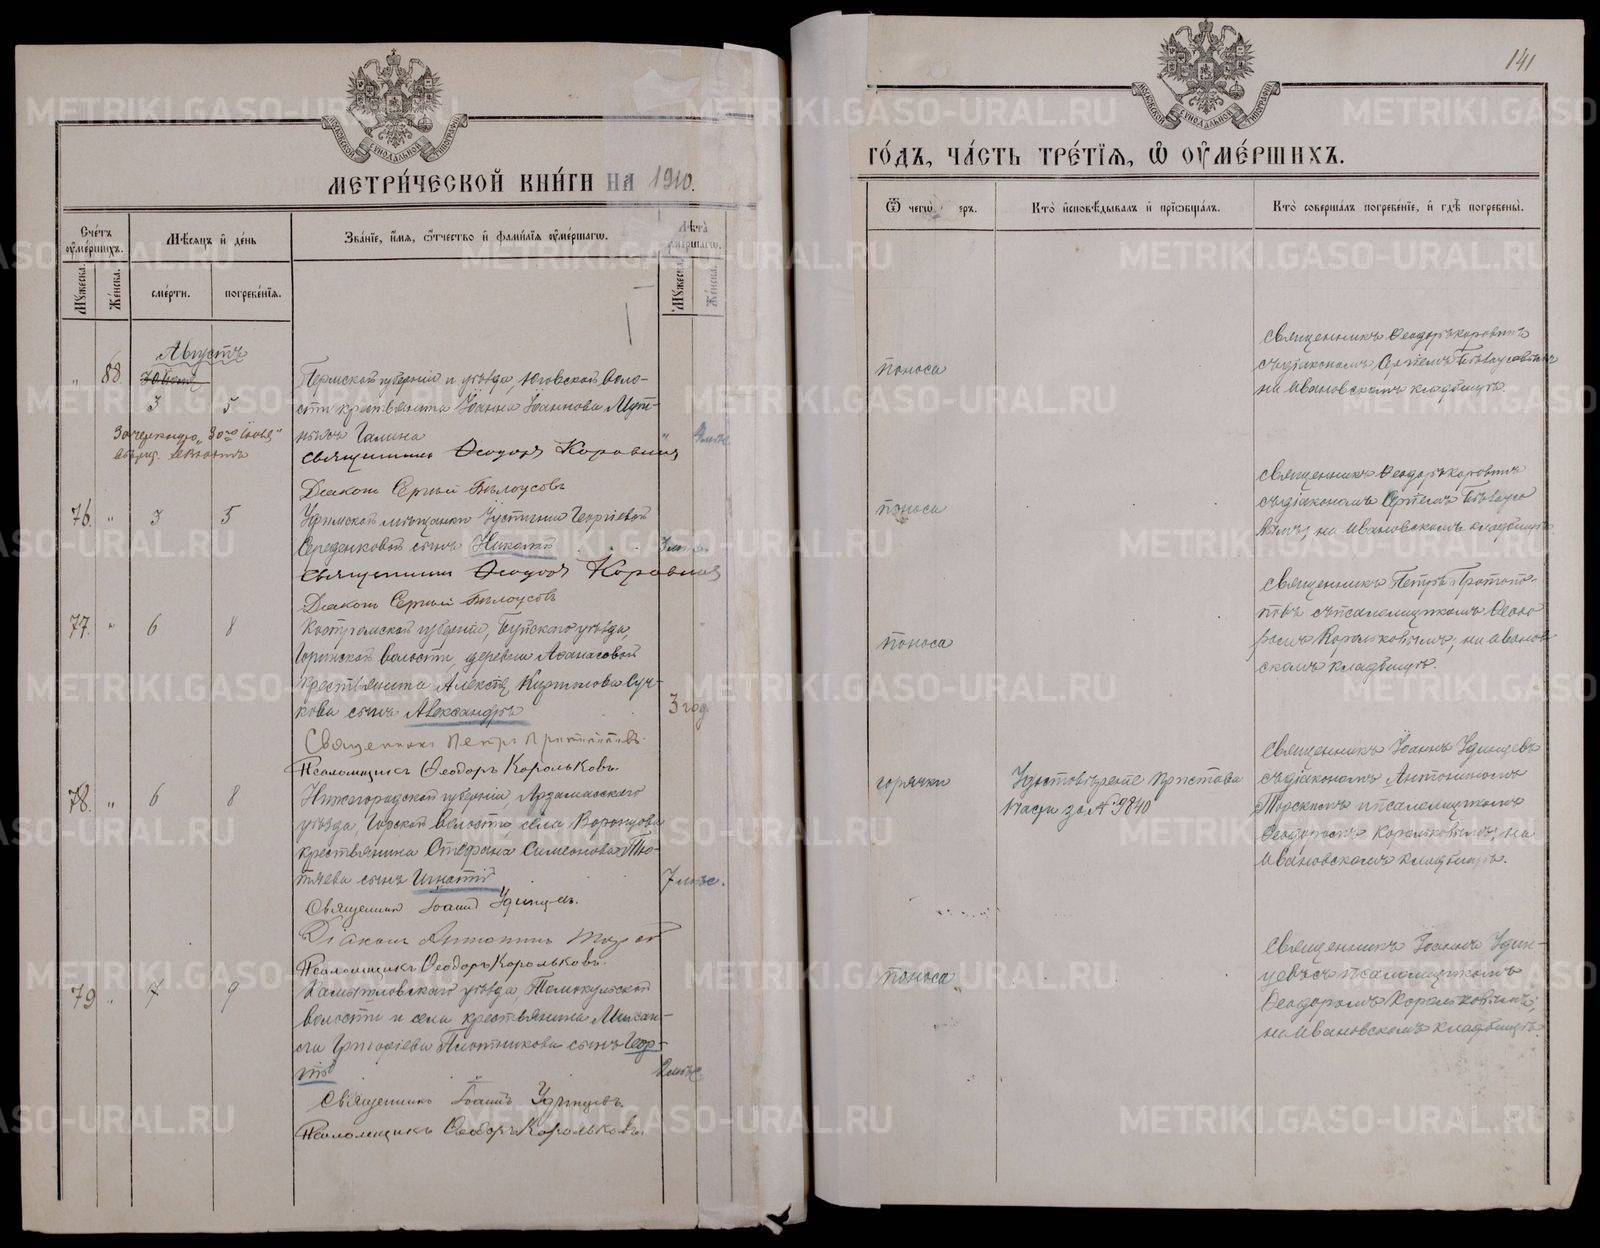 141
МЕТРИ́ЧЕСКОЙ КНИ́ГИ НА 1910.
ГО́ДЪ, ЧА́СТЬ ТРЕ́ТІѦ, Ѡ҆ ОУ҆МЕ́РШИХЪ.
Сче́тъ оу҆ме́ршихъ.
Мѣ́сѧцъ и҆ де́нь
Зва́нїе, и҆́мѧ, ѻ҆́тчество и҆ фами́лїѧ оу҆ме́ршагѡ.
Лѣ́та оу҆ме́ршагѡ.
Мꙋ́жеска.
Же́нска.
сме́рти.
погребе́нїѧ.
Мꙋ́жеска.
Же́нска.
Ѿ чегѡ̀ еръ.
Кто̀ и҆сповѣ́дывалъ и҆ прїѻбща́лъ.
Кто̀ соверша́лъ погребе́нїе, и҆ гдѣ̀ погребены̀.
Августъ
" 88 3 5
Пермской губерніи и уѣзда, Юговской воло-
сти крестьянина Іоанна Іоаннова
Галина
Священникъ Ѳеодоръ Коровинъ
Діаконъ Сергій Бѣлоусовъ
поноса
Священникъ Ѳеодоръ Коровинъ
съ діакономъ Сергіемъ Бѣлоусовымъ
на Ивановскомъ кладбищѣ.
76. " 3 5
мѣщанки Іустиніи Георгіевой
Середенковой сынъ Николай
3 мѣс.
Священникъ Ѳеодоръ Коровинъ
Діаконъ Сергій Бѣлоусовъ
поноса
Священникъ Ѳеодоръ Коровинъ
съ діакономъ Сергіемъ Бѣлоусо
вымъ, на Ивановскомъ кладбищѣ.
77. " 6 8
Костромской губерніи, Буйского уѣзда,
волости, деревни Аѳанасовой
крестьянина Алексѣя Кириллова Суч-
кова сынъ Александръ
3 год
Священникъ Петръ Протопоповъ
Псаломщикъ Ѳеодоръ Корольковъ.
поноса
Священникъ Петръ Протопо-
повъ съ псаломщикомъ Ѳеодо
ромъ Корольковымъ, на Иванов
скомъ кладбищѣ.
78. " 6 8
Нижегородской губерніи, Арзамасскаго
уѣзда, волости, села Воронцова
крестьянина Стефана Симеонова Тю-
тяева сынъ Игнатій
7 мѣс.
Священникъ Іоаннъ Удинцевъ.
Діаконъ Антонинъ
Псаломщикъ Ѳеодоръ Корольковъ.
горячки
Удостовѣреніе Пристава
части за № 9840
Священникъ Іоаннъ Удинцевъ
съ діакономъ Антониномъ
и псаломщикомъ
Ѳеодоромъ Корольковымъ, на
Ивановскомъ кладбищѣ.
79 " 7 9
Камышловскаго уѣзда, Тамакульской
волости и села крестьянина Михаи-
ла Григоріева Плотникова сынъ Геор-
гій
Священникъ Іоаннъ Удинцевъ.
Псаломщикъ Ѳеодоръ Корольковъ.
поноса
Священникъ Іоаннъ Удин-
цевъ съ псаломщикомъ
Ѳеодоромъ Корольковымъ,
на Ивановскомъ кладбищѣ.
METRIKI.GASO-URAL.RU